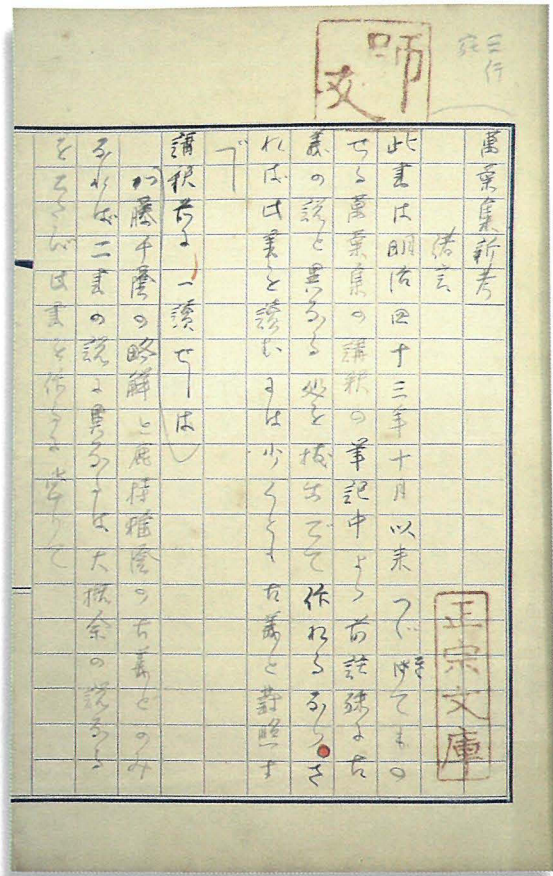 三行
萬葉集新考
緒言
此書は明治四十三年十月以来つゞけてもの
せる萬葉集の講釈の筆記中より前註殊に古
義の説と異なる処を抜出でて作れるなり さ
れば此書を讀むには少くとも古義と對照す
べし
講釈前に一讀せしは
加藤千蔭の略解と鹿持雅澄の古義とのみ
なれば二書の説に異なるは大概余の説なる
を 此書を作るに當りて
正宗文庫